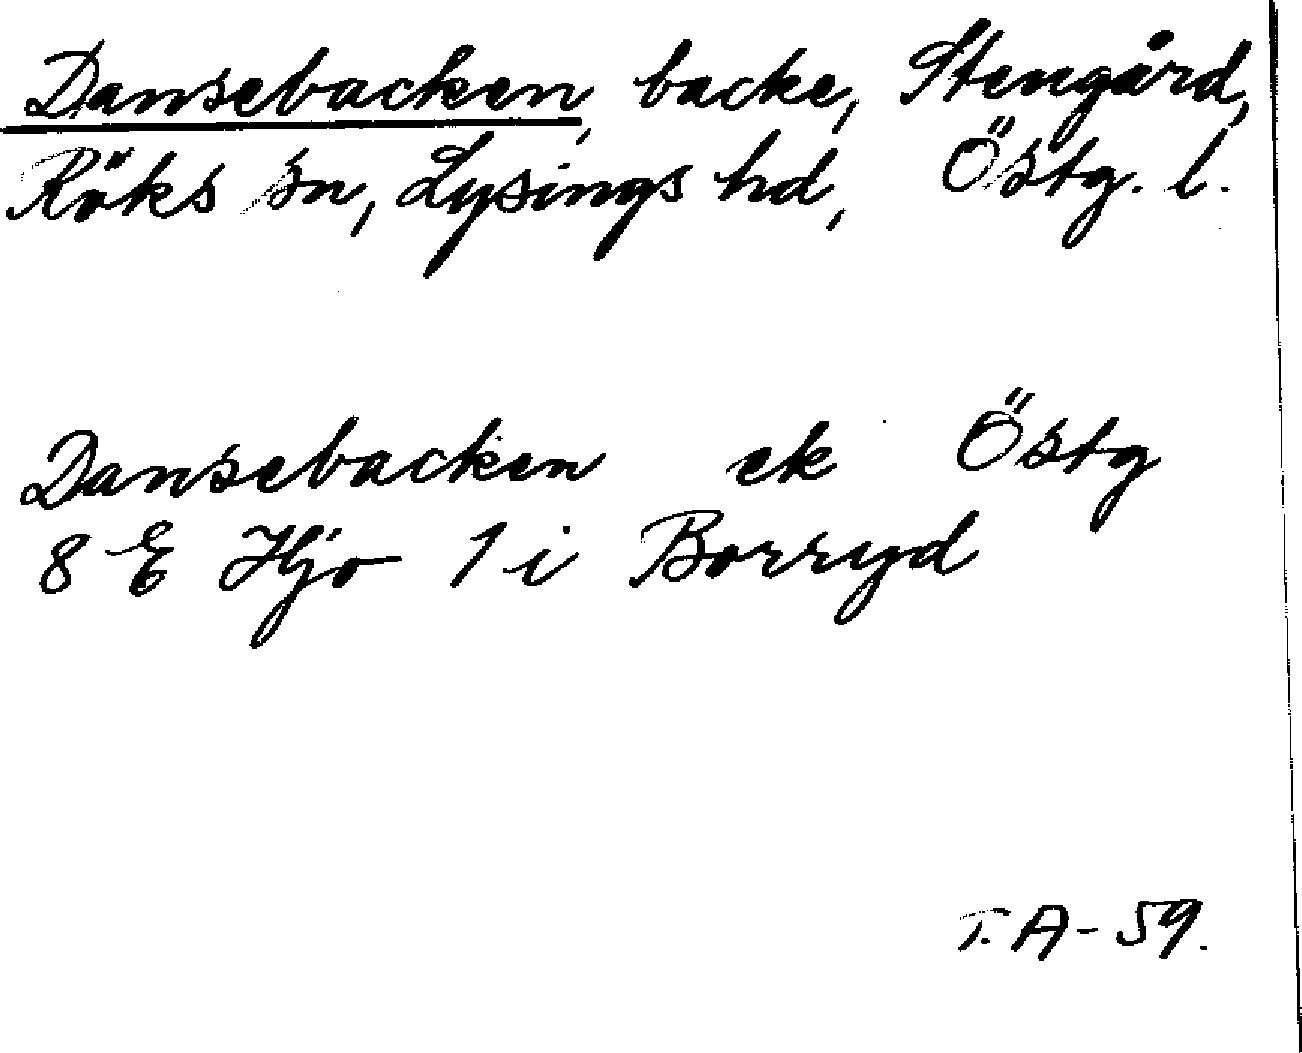 Dansebacken, backe, Stengård,
Röks sn, Lysings hd, Östg. l.
Dansebacken ek Östg
8 E Hjo 1 i Borryd
T. A-59.